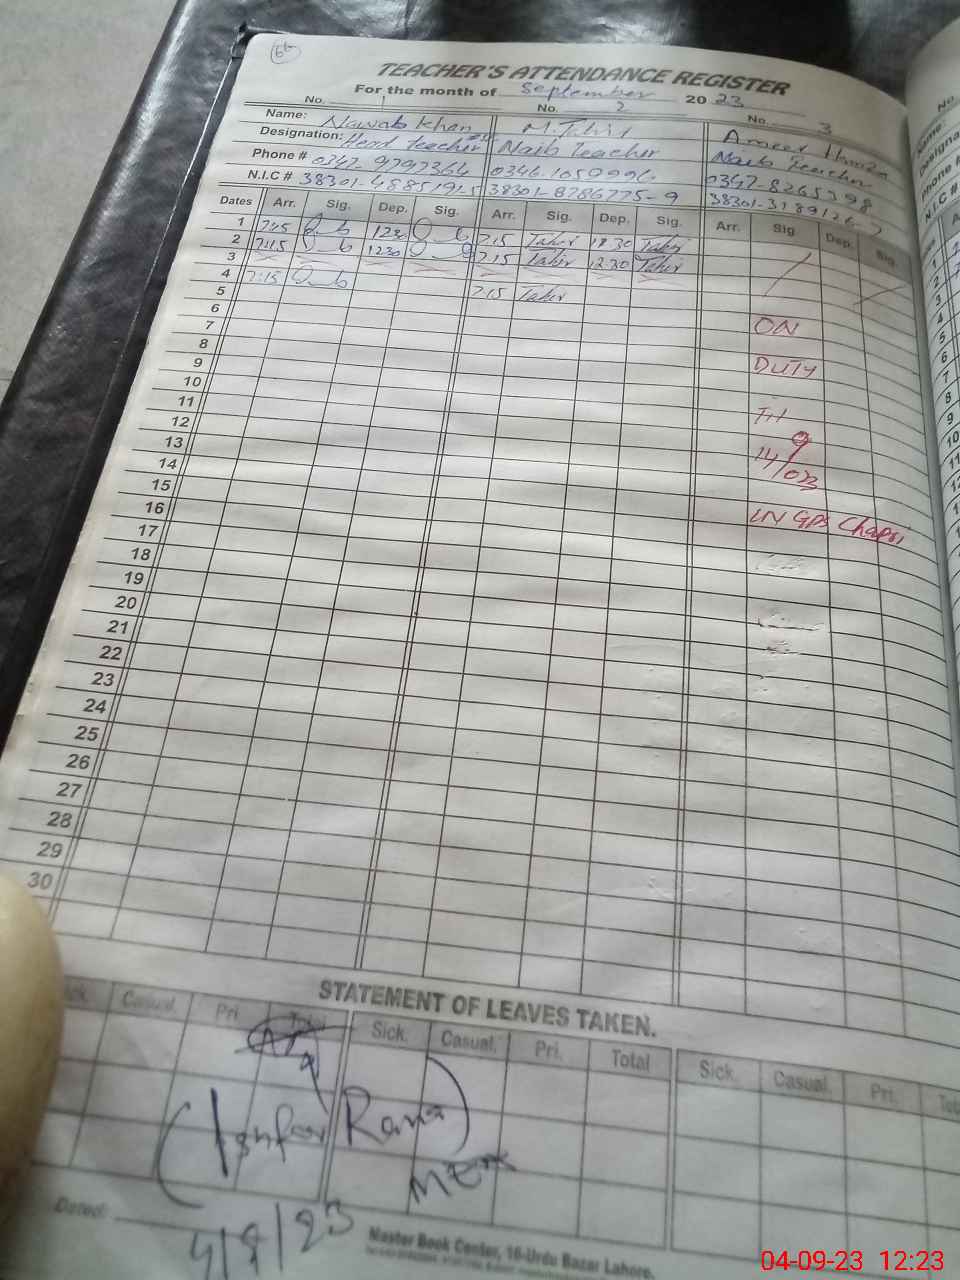 TEACHER'S ATTENDANCE REGISTER
For the month of September 2023
No. 1 No. 2 No. 3
Name: Nawab Khan M. Tahir Ameer Hamza
Designation: Head teacher Naib Teacher Naib Teacher
Phone # 0347-9797364 0346-1059996 0347-8265398
N.I.C # 38301-4885191-5 38301-8786775-9
Dates Arr. Sig. Dep. Sig. Arr. Sig. Dep. Sig. Arr. Sig Dep. Sig.
1 7:15 1230 7:15 Tahir 12 30 Tahir
2 7:15 1230 7:15 Tahir 12 30 Tahir
3
4 7:15 7:15 Tahir
5
6
7 ON
8
9 DUTY
10
11
12
13
14
15
16 IN GPS Chapri
17
18
19
20
21
22
23
24
25
26
27
28
29
30
STATEMENT OF LEAVES TAKEN.
Casual. Pri Total Sick. Casual. Pri. Total Sick. Casual. Pri.
Rana)
4/9/23
Dated:
Master Book Center, 16-Urdu Bazar Lahore.
04-09-23 12:23